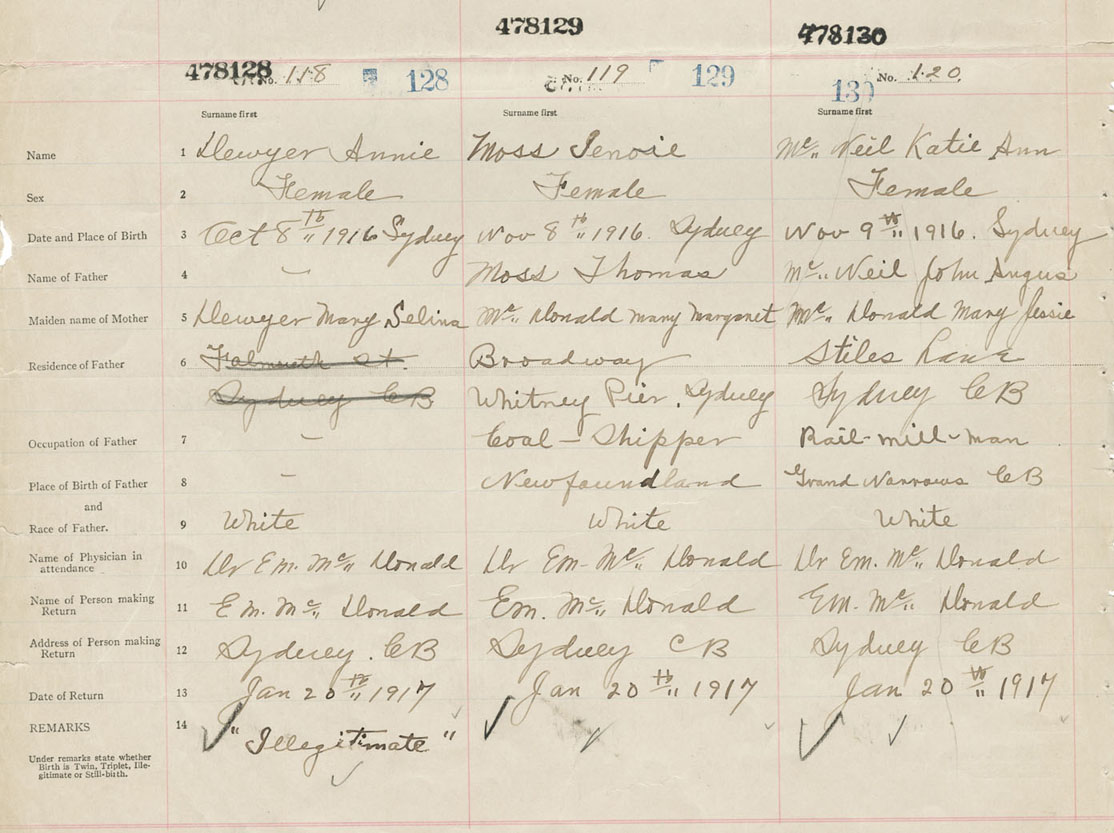 478128 478129 478130
No. 118 128 No. 119 129 130 No. 120
Surname first Surname first Surname first
Name 1 Dewyer Annie Moss Jenoie Mc Neil Katie Ann
Sex 2 Female Female Female
Date and Place of Birth 3 Oct 8th 1916 Sydney Nov 8th 1916. Sydney Nov 9th 1916. Sydney
Name of Father 4 — Moss Thomas Mc Neil John Angus
Maiden name of Mother 5 Dewyer Mary Selina Mc Donald Mary Margaret Mc Donald Mary Jessie
Residence of Father 6 Falmouth St. Broadway Stiles Lane
Sydney CB Whitney Pier, Sydney Sydney CB
Occupation of Father 7 — Coal - Shipper Rail-mill-man
Place of Birth of Father 8 — Newfoundland Grand Narrows CB
and
Race of Father. 9 White White White
Name of Physician in
attendance 10 Dr Em. Mc Donald Dr Em. Mc Donald Dr Em. Mc Donald
Name of Person making
Return 11 Em. Mc Donald Em. Mc Donald Em. Mc Donald
Address of Person making
Return 12 Sydney. CB Sydney CB Sydney CB
Date of Return 13 Jan 20th 1917 Jan 20th 1917 Jan 20th 1917
REMARKS 14 "Illegitimate"
Under remarks state whether
Birth is Twin, Triplet, Ille-
gitimate or Still-birth.